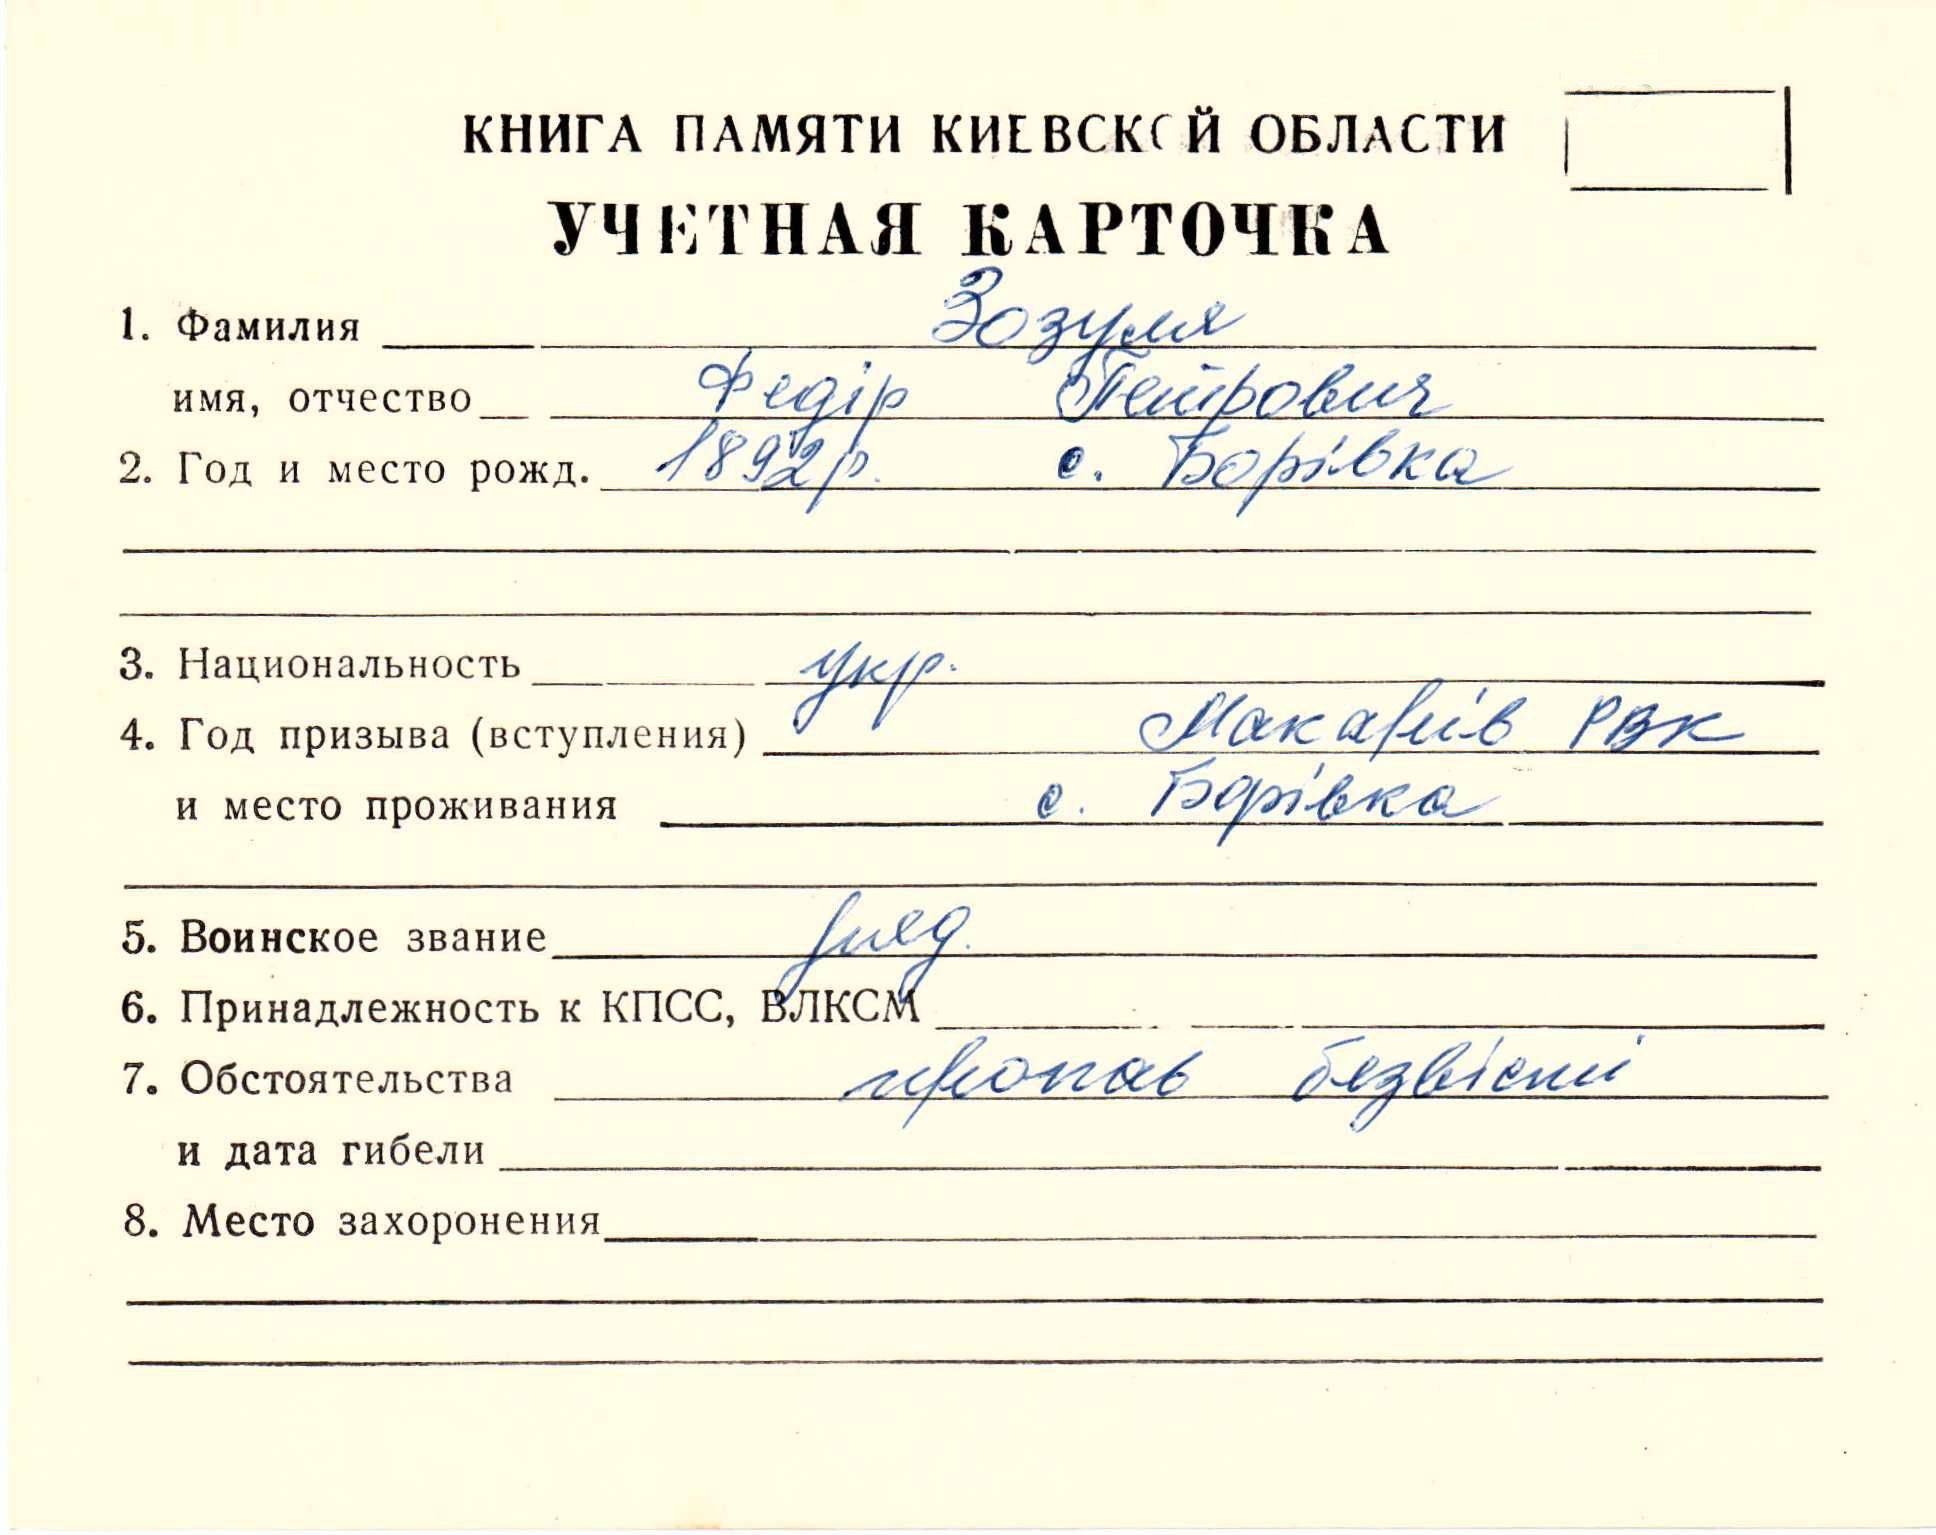 КНИГА ПАМЯТИ КИЕВСКОЙ ОБЛАСТИ
УЧЕТНАЯ КАРТОЧКА
1. Фамилия Зозуля
имя, отчество Федір Петрович
2. Год и место рожд. 1892 р. с. Борівка
3. Национальность укр.
4. Год призыва (вступления) Макарів РВК
и место проживания с. Борівка
5. Воинское звание ряд.
6. Принадлежность к КПСС, ВЛКСМ
7. Обстоятельства пропав безвісті
и дата гибели
8. Место захоронения